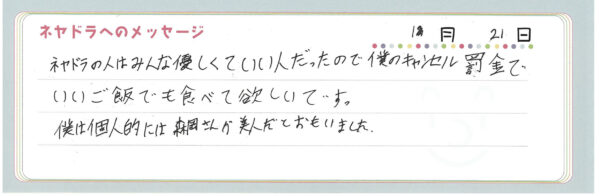 ネヤドラへのメッセージ
月 21日
ネヤドラの人はみんな優しくていい人だったので僕のキャンセル罰金で
いいご飯でも食べて欲しいです。
僕は個人的には森岡さんが美人だとおもいました.